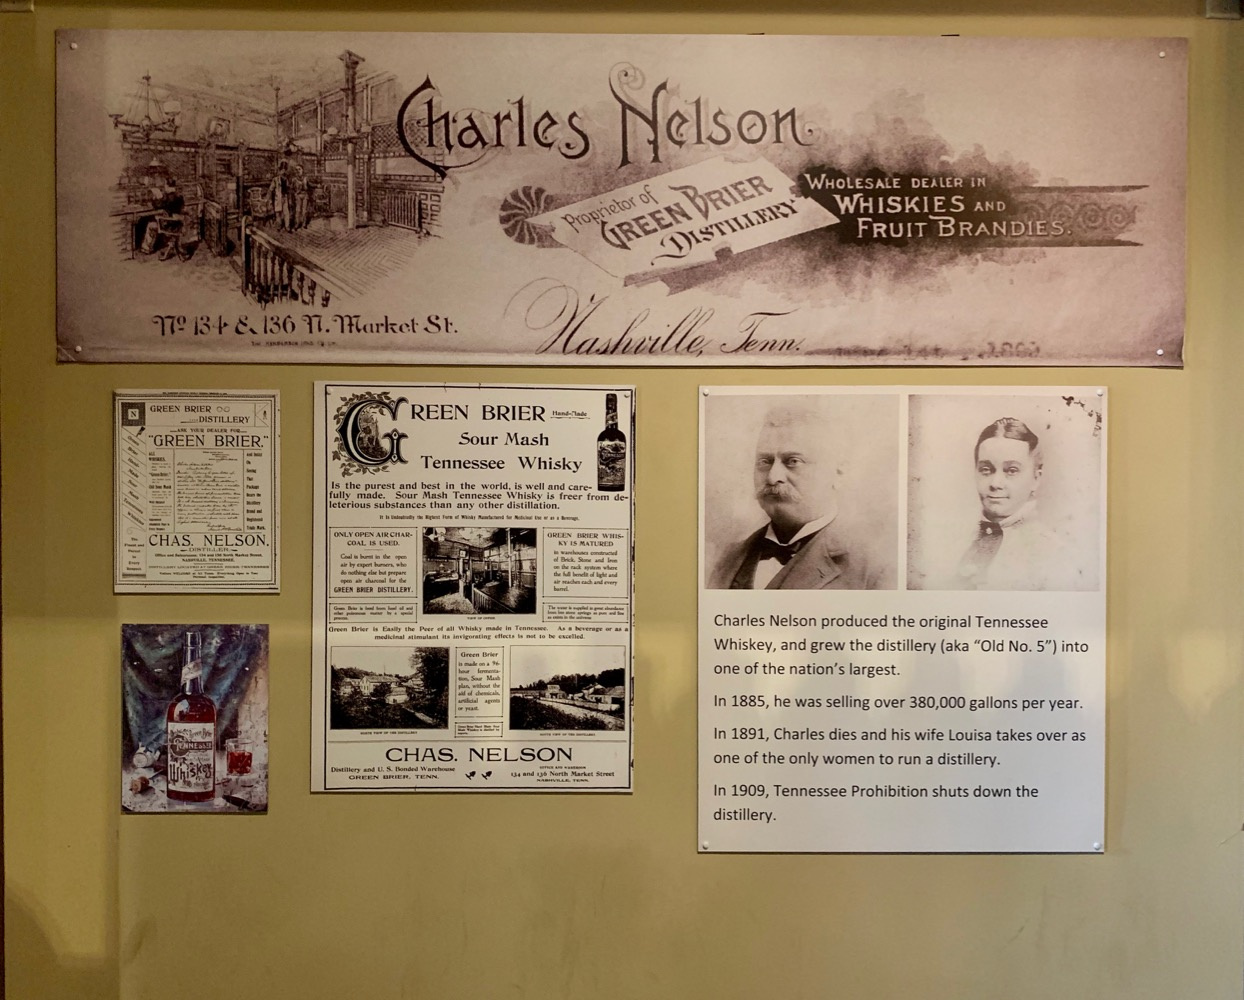 Charles Nelson
Proprietor of
GREEN BRIER
DISTILLERY
WHOLESALE DEALER IN
WHISKIES AND
FRUIT BRANDIES.
No 134 & 136 N. Market St.
Nashville, Tenn.
GREEN BRIER
DISTILLERY
ASK YOUR DEALER FOR
"GREEN BRIER."
CHAS. NELSON,
DISTILLER
NASHVILLE, TENNESSEE.
GREEN BRIER Hand-Made
Sour Mash
Tennessee Whisky
Is the purest and best in the world, is well and care-
fully made. Sour Mash Tennessee Whisky is freer from de-
leterious substances than any other distillation.
It is Undoubtedly the Highest Form of Whisky Manufactured for Medicinal Use or as a Beverage.
ONLY OPEN AIR CHAR-
COAL IS USED.
Coal is burnt in the open
air by expert burners, who
do nothing else but prepare
open air charcoal for the
GREEN BRIER DISTILLERY.
GREEN BRIER WHIS-
KY IS MATURED
in warehouses constructed
of Brick, Stone and Iron
on the rack system where
the full benefit of light and
air reaches each and every
barrel.
Green Brier is Easily the Peer of all Whisky made in Tennessee. As a beverage or as a
medicinal stimulant its invigorating effects is not to be excelled.
Green Brier
is made on a 96-
hour fermenta-
tion, Sour Mash
plan, without the
aid of chemicals,
artificial agents
or yeast.
CHAS. NELSON
Distillery and U. S. Bonded Warehouse
GREEN BRIER, TENN.
OFFICE AND WAREROOM
134 and 136 North Market Street
NASHVILLE, TENN.
Whiskey
Charles Nelson produced the original Tennessee
Whiskey, and grew the distillery (aka “Old No. 5”) into
one of the nation’s largest.
In 1885, he was selling over 380,000 gallons per year.
In 1891, Charles dies and his wife Louisa takes over as
one of the only women to run a distillery.
In 1909, Tennessee Prohibition shuts down the
distillery.